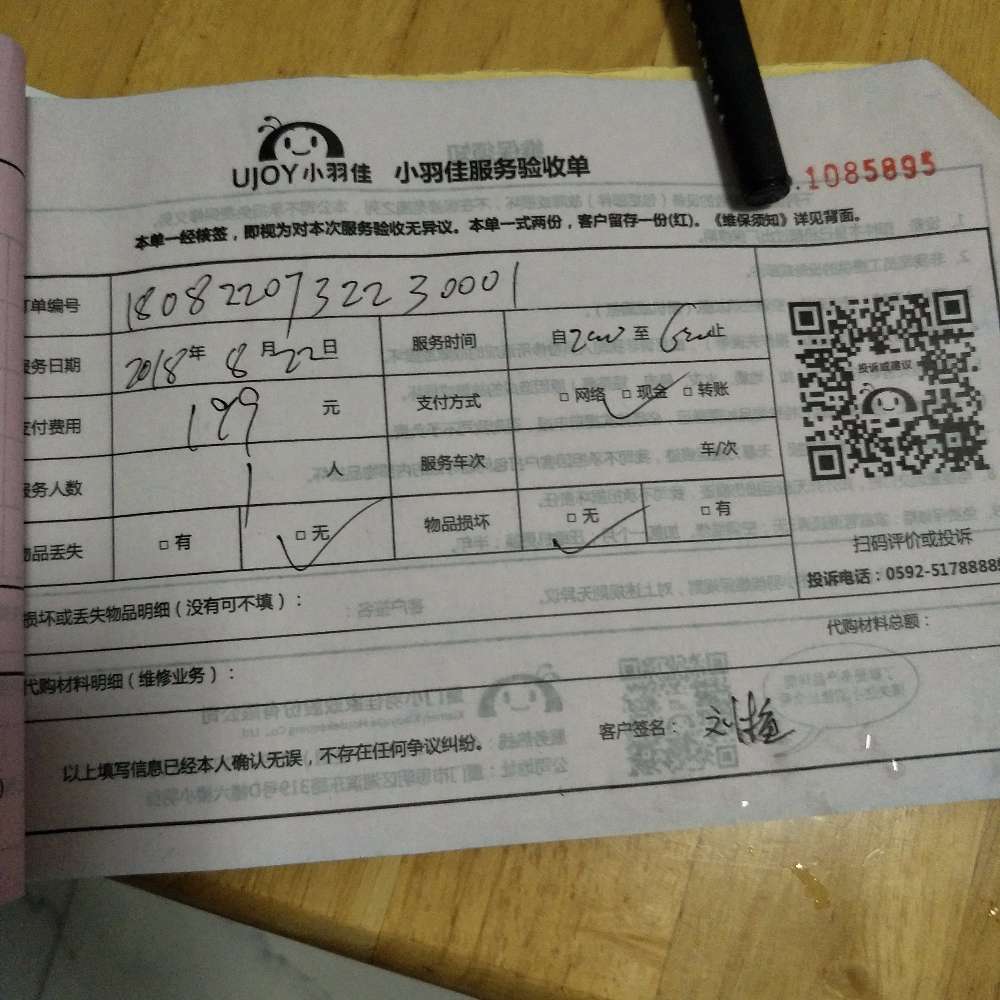 UJOY小羽佳 小羽佳服务验收单
.1085895
本单一经核签,即视为对本次服务验收无异议。本单一式两份,客户留存一份(红)。《维保须知》详见背面。
单编号 1808220732230001
务日期 2018年 8月22日 服务时间 自 至 止
付费用 199 元 支付方式 □网络 □现金 □转账
务人数 1 人 服务车次 车/次
品丢失 □有 □无 物品损坏 □无 □有
投诉或建议
扫码评价或投诉
投诉电话:0592-5178888
损坏或丢失物品明细(没有可不填):
代购材料明细(维修业务): 代购材料总额:
以上填写信息已经本人确认无误,不存在任何争议纠纷。 客户签名: 刘